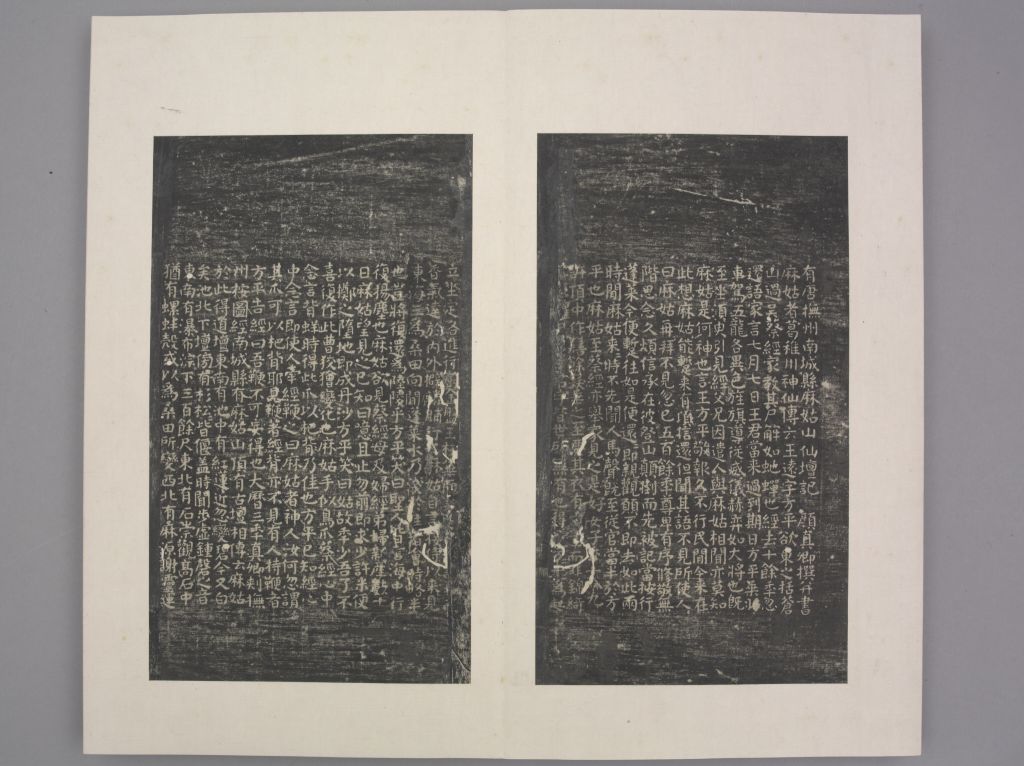 有唐撫州南城縣麻姑山仙壇記 顏真卿撰并書
麻姑者葛稚川神仙傳云王遠字方平欲東之括蒼
山過蔡經家教其尸解如蛇蟬也經去十餘年忽
還語家言七月七日王君當來過到期日方平乘羽
車駕五龍各異色旌旗導從威儀赫弈如大將也既
至坐須臾引見經父兄因遣人與麻姑相聞亦莫知
麻姑是何神也言王方平敬報久不行民間今來在
此想麻姑能暫來有頃信還但聞其語不見所使人
曰麻姑再拜不見忽已五百餘年尊卑有序脩敬無
階思念久煩信承在彼登山顛倒而先被記當按行
蓬萊今便暫往如是便還還即親觀願不即去如此兩
時聞麻姑來時不先聞人馬聲既至從官當半於方
平也麻姑至蔡經亦舉家見之是好女子年十八九
許頂中作髻餘髮垂之至要其衣有
立坐定各進行
香氣達於內外
東海三為桑田向間蓬萊水乃淺
也豈將復還為陸陵乎方平笑曰聖人皆言海中行
復揚塵也麻姑欲見蔡經母及婦經弟婦新產數十
日麻姑望見之已知曰噫且止勿前即求少許米便
以擲之墮地即成丹沙方平笑曰姑故年少吾了不
喜復作此曹狡獪變化也麻姑手似鳥爪蔡經心中
念言背蛘時得此爪以杷背乃佳也方平已知經心
中念言即使人牽經鞭之曰麻姑者神人汝何忽謂
其爪可以杷背耶見鞭著經背亦不見有人持鞭者
方平告經曰吾鞭不可妄得也大曆三年真卿刺撫
州按圖經南城縣有麻姑山頂有古壇相傳云麻姑
於此得道壇東南有池中有紅蓮近忽變碧今又白
矣池北下壇傍有杉松皆偃蓋時聞步虛鍾磬之音
東南有瀑布淙下三百餘尺東北有石崇觀高石中
猶有螺蚌殼或以為桑田所變西北有麻源謝靈運